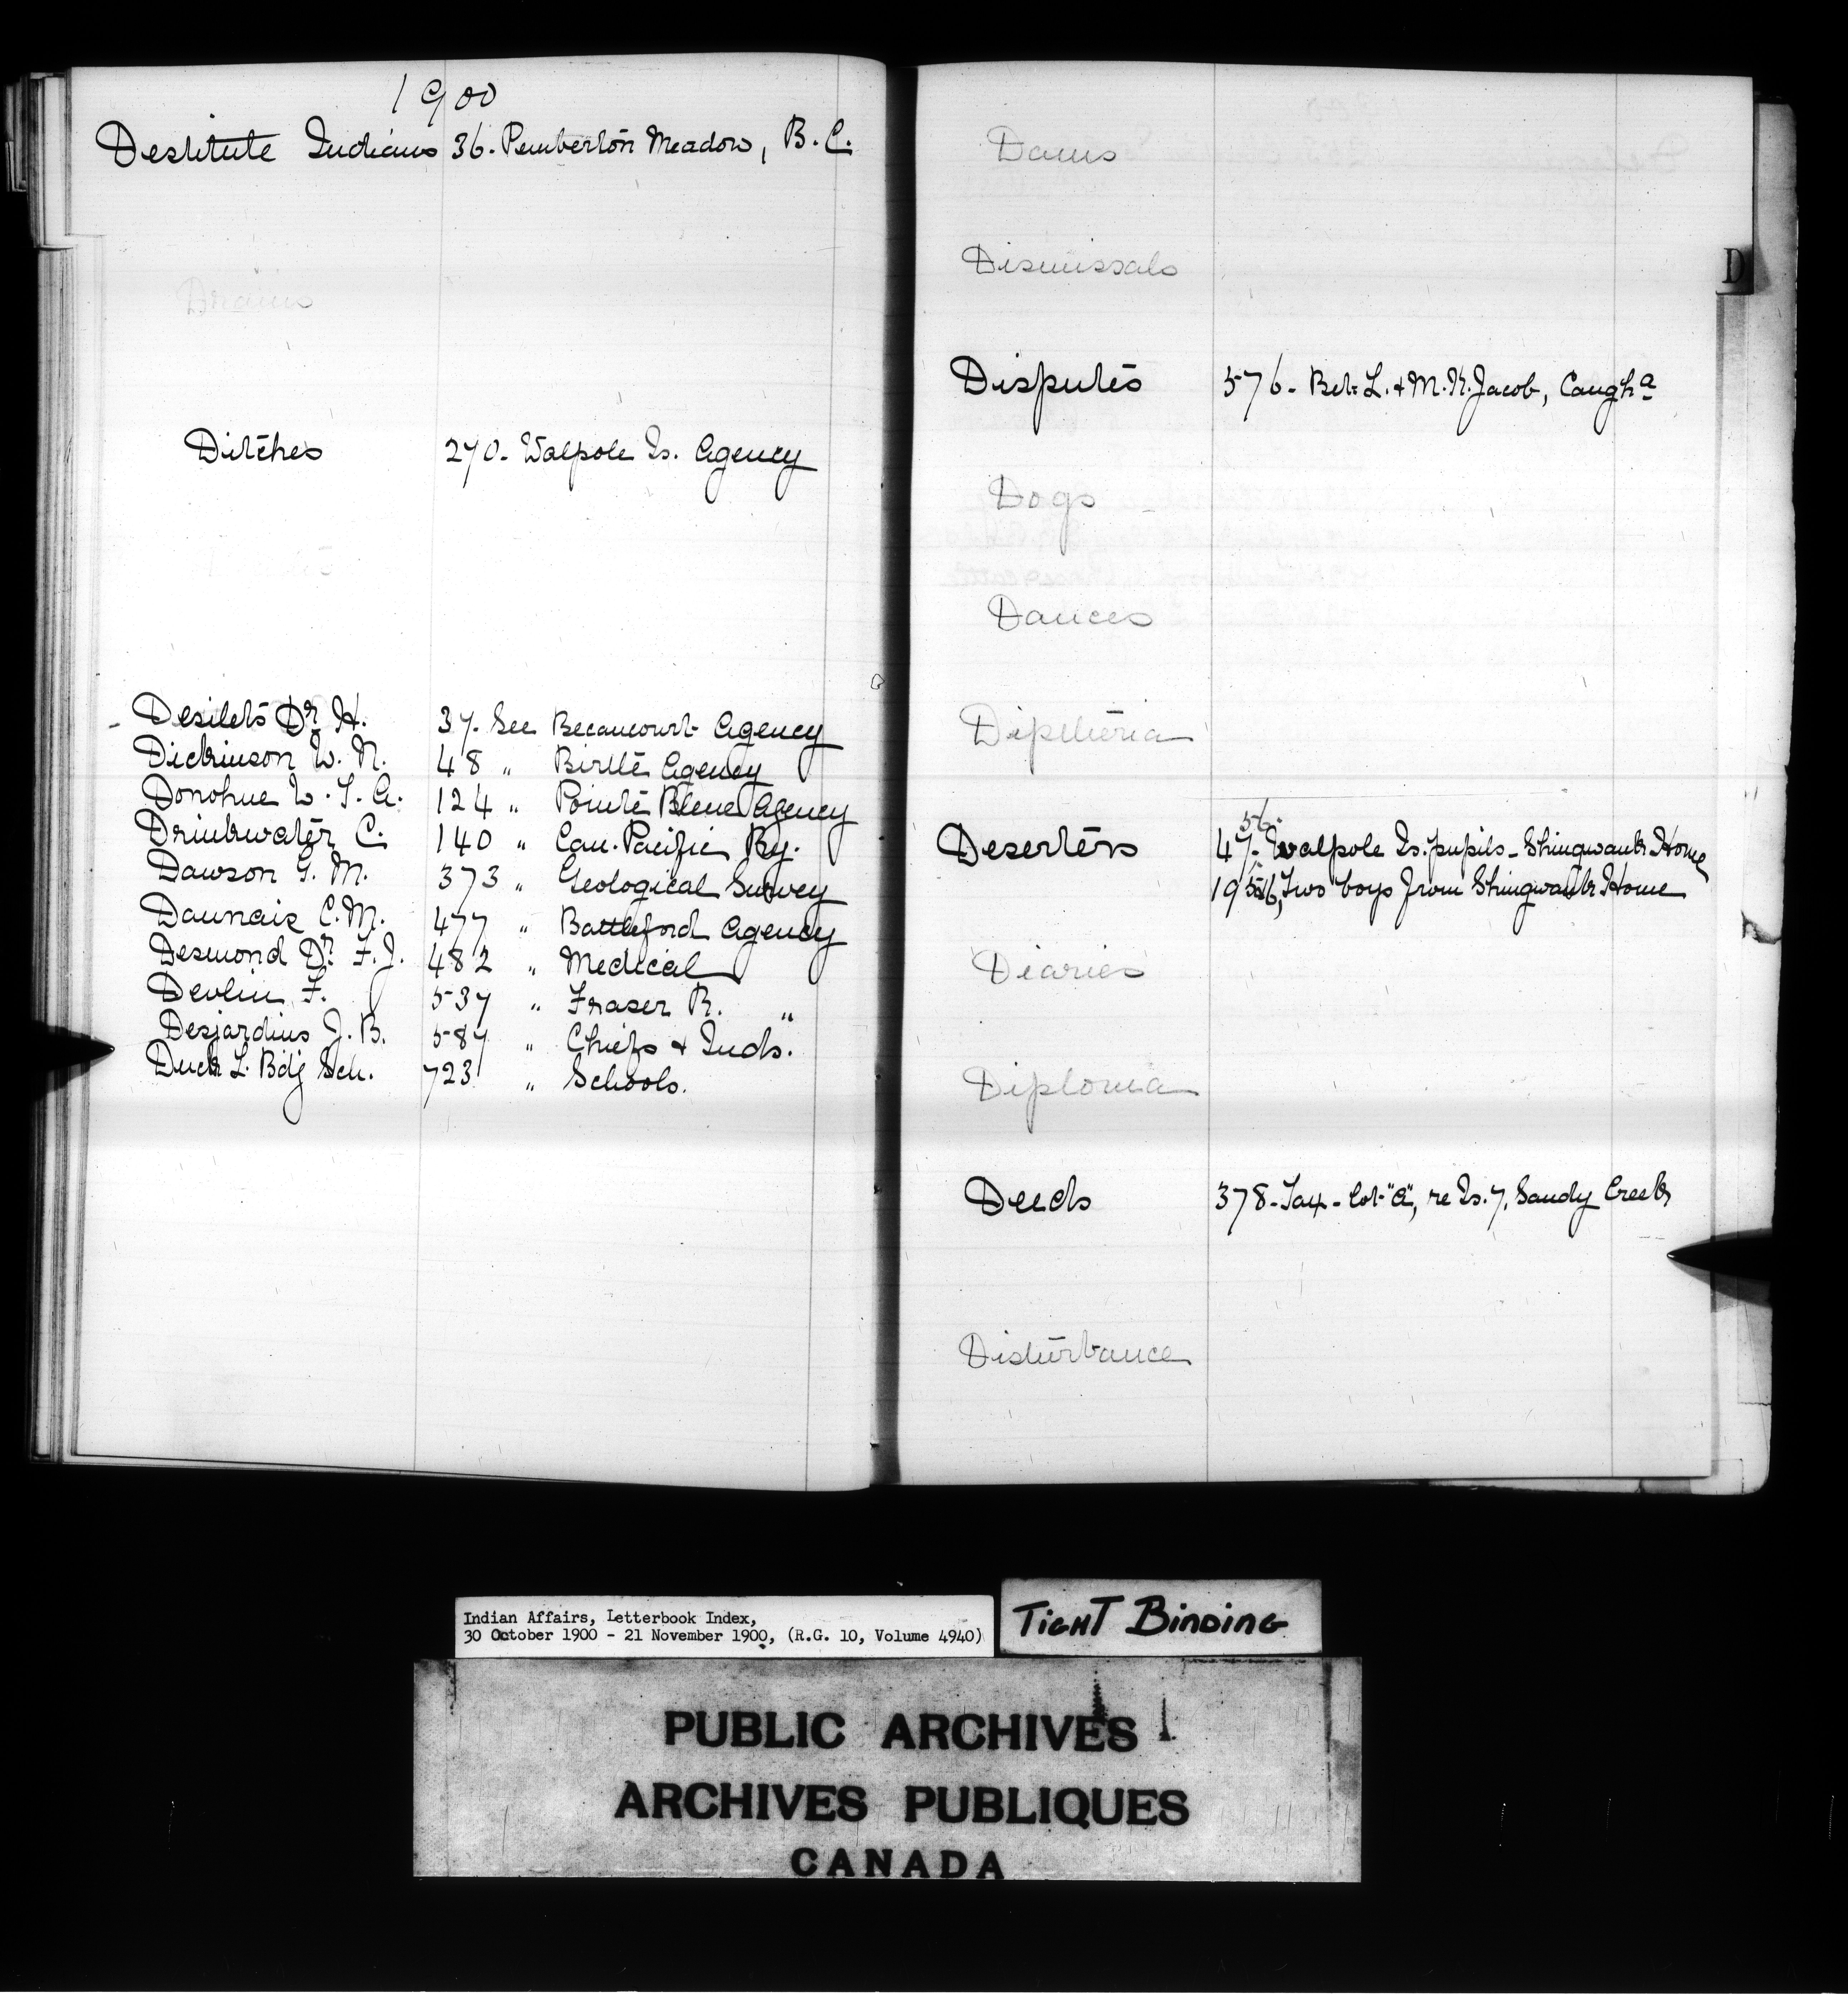 1900
Destitute Indians 36. Pemberton Meadow, B.C.
Drains
Ditches 270. Walpole Is. Agency
Desilets Dr. H. 37. See Becancourt Agency
Dickinson W. N. 48 " Birtle Agency
Donohue W. T. A. 124 " Pointe Bleue Agency
Drinkwater C. 140 " Can. Pacific Ry.
Dawson G. M. 373 " Geological Survey
Daunais C. M. 477 " Battleford Agency
Desmond Dr. F. J. 482 " Medical
Devlin F. 537 " Fraser R. "
Desjardins J. B. 587 " Chiefs & Inds.
Duck L. Bdg Sch. 723 " Schools.
Dams
Dismissals
D
Disputes 576. Bet. L. & M. K. Jacob, Caugh.a
Dogs
Dances
Diptheria
56.
Deserters 47. Walpole Is. pupils - Shingwauk Home
Two boys from Shingwauk Home
Diaries
Diploma
Deeds 378 - Tax - lot "A", re Is. 7, Sandy Creek
Disturbance
Indian Affairs, Letterbook Index,
30 October 1900 - 21 November 1900, (R.G. 10, Volume 4940)
TIGHT BINDING
PUBLIC ARCHIVES
ARCHIVES PUBLIQUES
CANADA